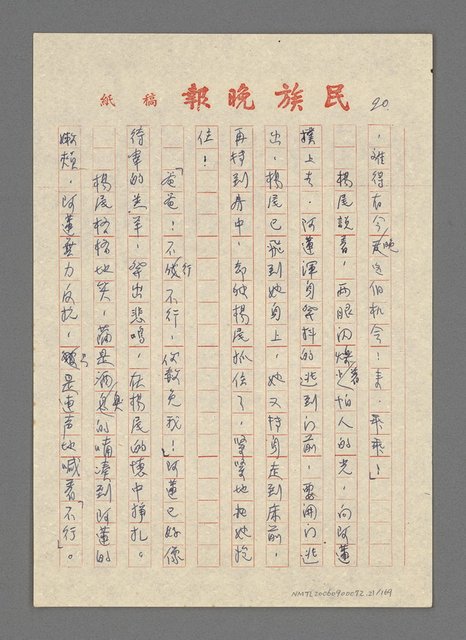 民族晚報 稿紙
20.
，難得有今晚這個机会！來，乖乖！
楊展說着，兩眼閃爍着怕人的光，向阿蓮
撲上去。阿蓮渾身發抖的逃到门前，要開门逃
出，楊展已飛到她身上，她又轉身走到床前，
再轉到房中，却被楊展抓住了，緊緊地把她抱
住！
「爸爸！不行不行，你敎免我！」阿蓮已好像
待宰的羔羊，發出悲鳴，在楊展的懷中掙扎。
楊展格格地笑，滿是酒臭的嘴湊到阿蓮的
嫩頰，阿蓮無力反抗，只是連声地喊着「不行」。
NMTL20060900072.21/169